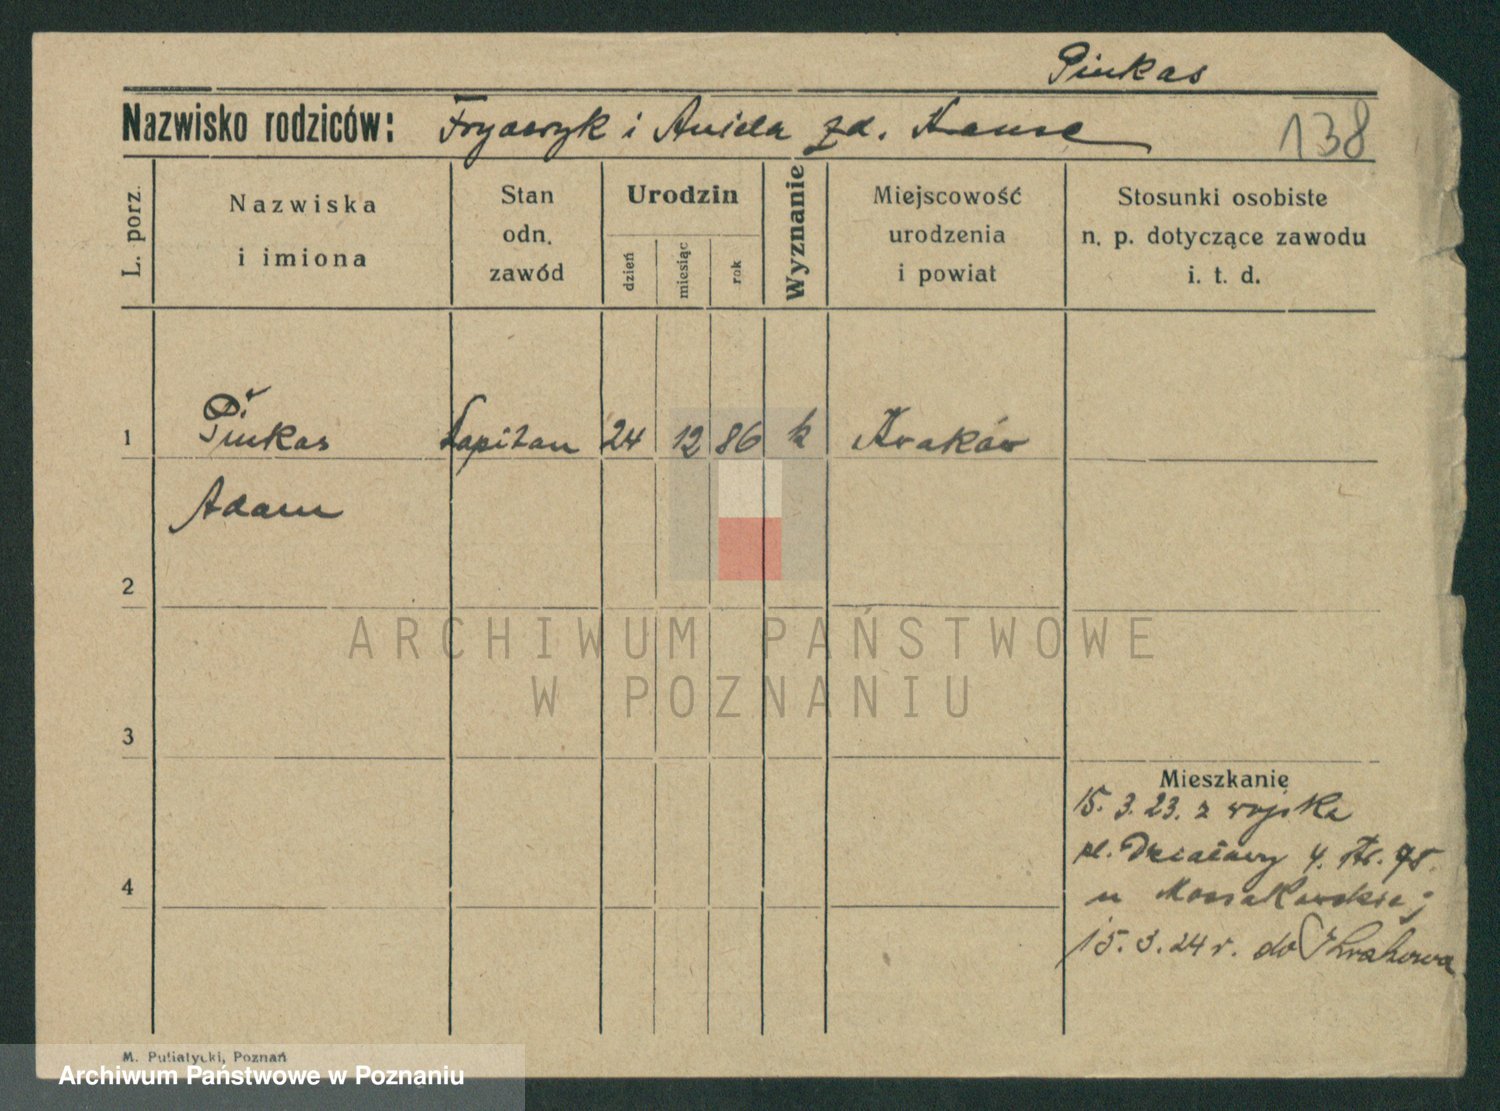 Pinkas
Nazwisko rodziców: Fryderyk i Aniela zd. Kause
138
L. porz.
Nazwiska
i imiona
Stan
odn.
zawód
Urodzin
dzień
miesiąc
rok
Wyznanie
Miejscowość
urodzenia
i powiat
Stosunki osobiste
n. p. dotyczące zawodu
i. t. d.
1 Pinkas kapitan 24 12 86 k Kraków
Adam
2
ARCHIWUM PAŃSTWOWE
W POZNANIU
3
Mieszkanie
15. 3. 23. z wojska
pl. Działowy 4.
4
u Mossakowskiej
15. 3. 24 r. do Krakowa
M. Putiatycki, Poznań
Archiwum Państwowe w Poznaniu